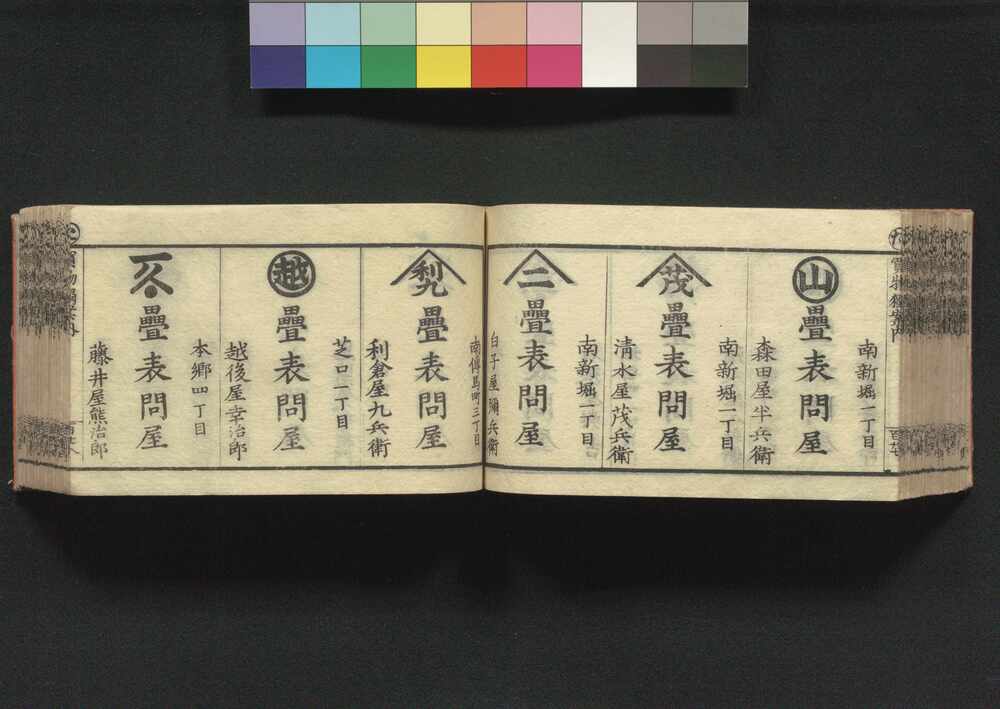 南新堀一丁目
山
疊表問屋
森田屋半兵衛
南新堀一丁目
茂
疊表問屋
清水屋茂兵衛
南新堀一丁目
二
疊表問屋
白子屋彌兵衛
南傳馬町三丁目
利九
疊表問屋
利倉屋九兵衛
芝口一丁目
越
疊表問屋
越後屋幸治郎
本郷四丁目
久
疊表問屋
藤井屋熊治郎